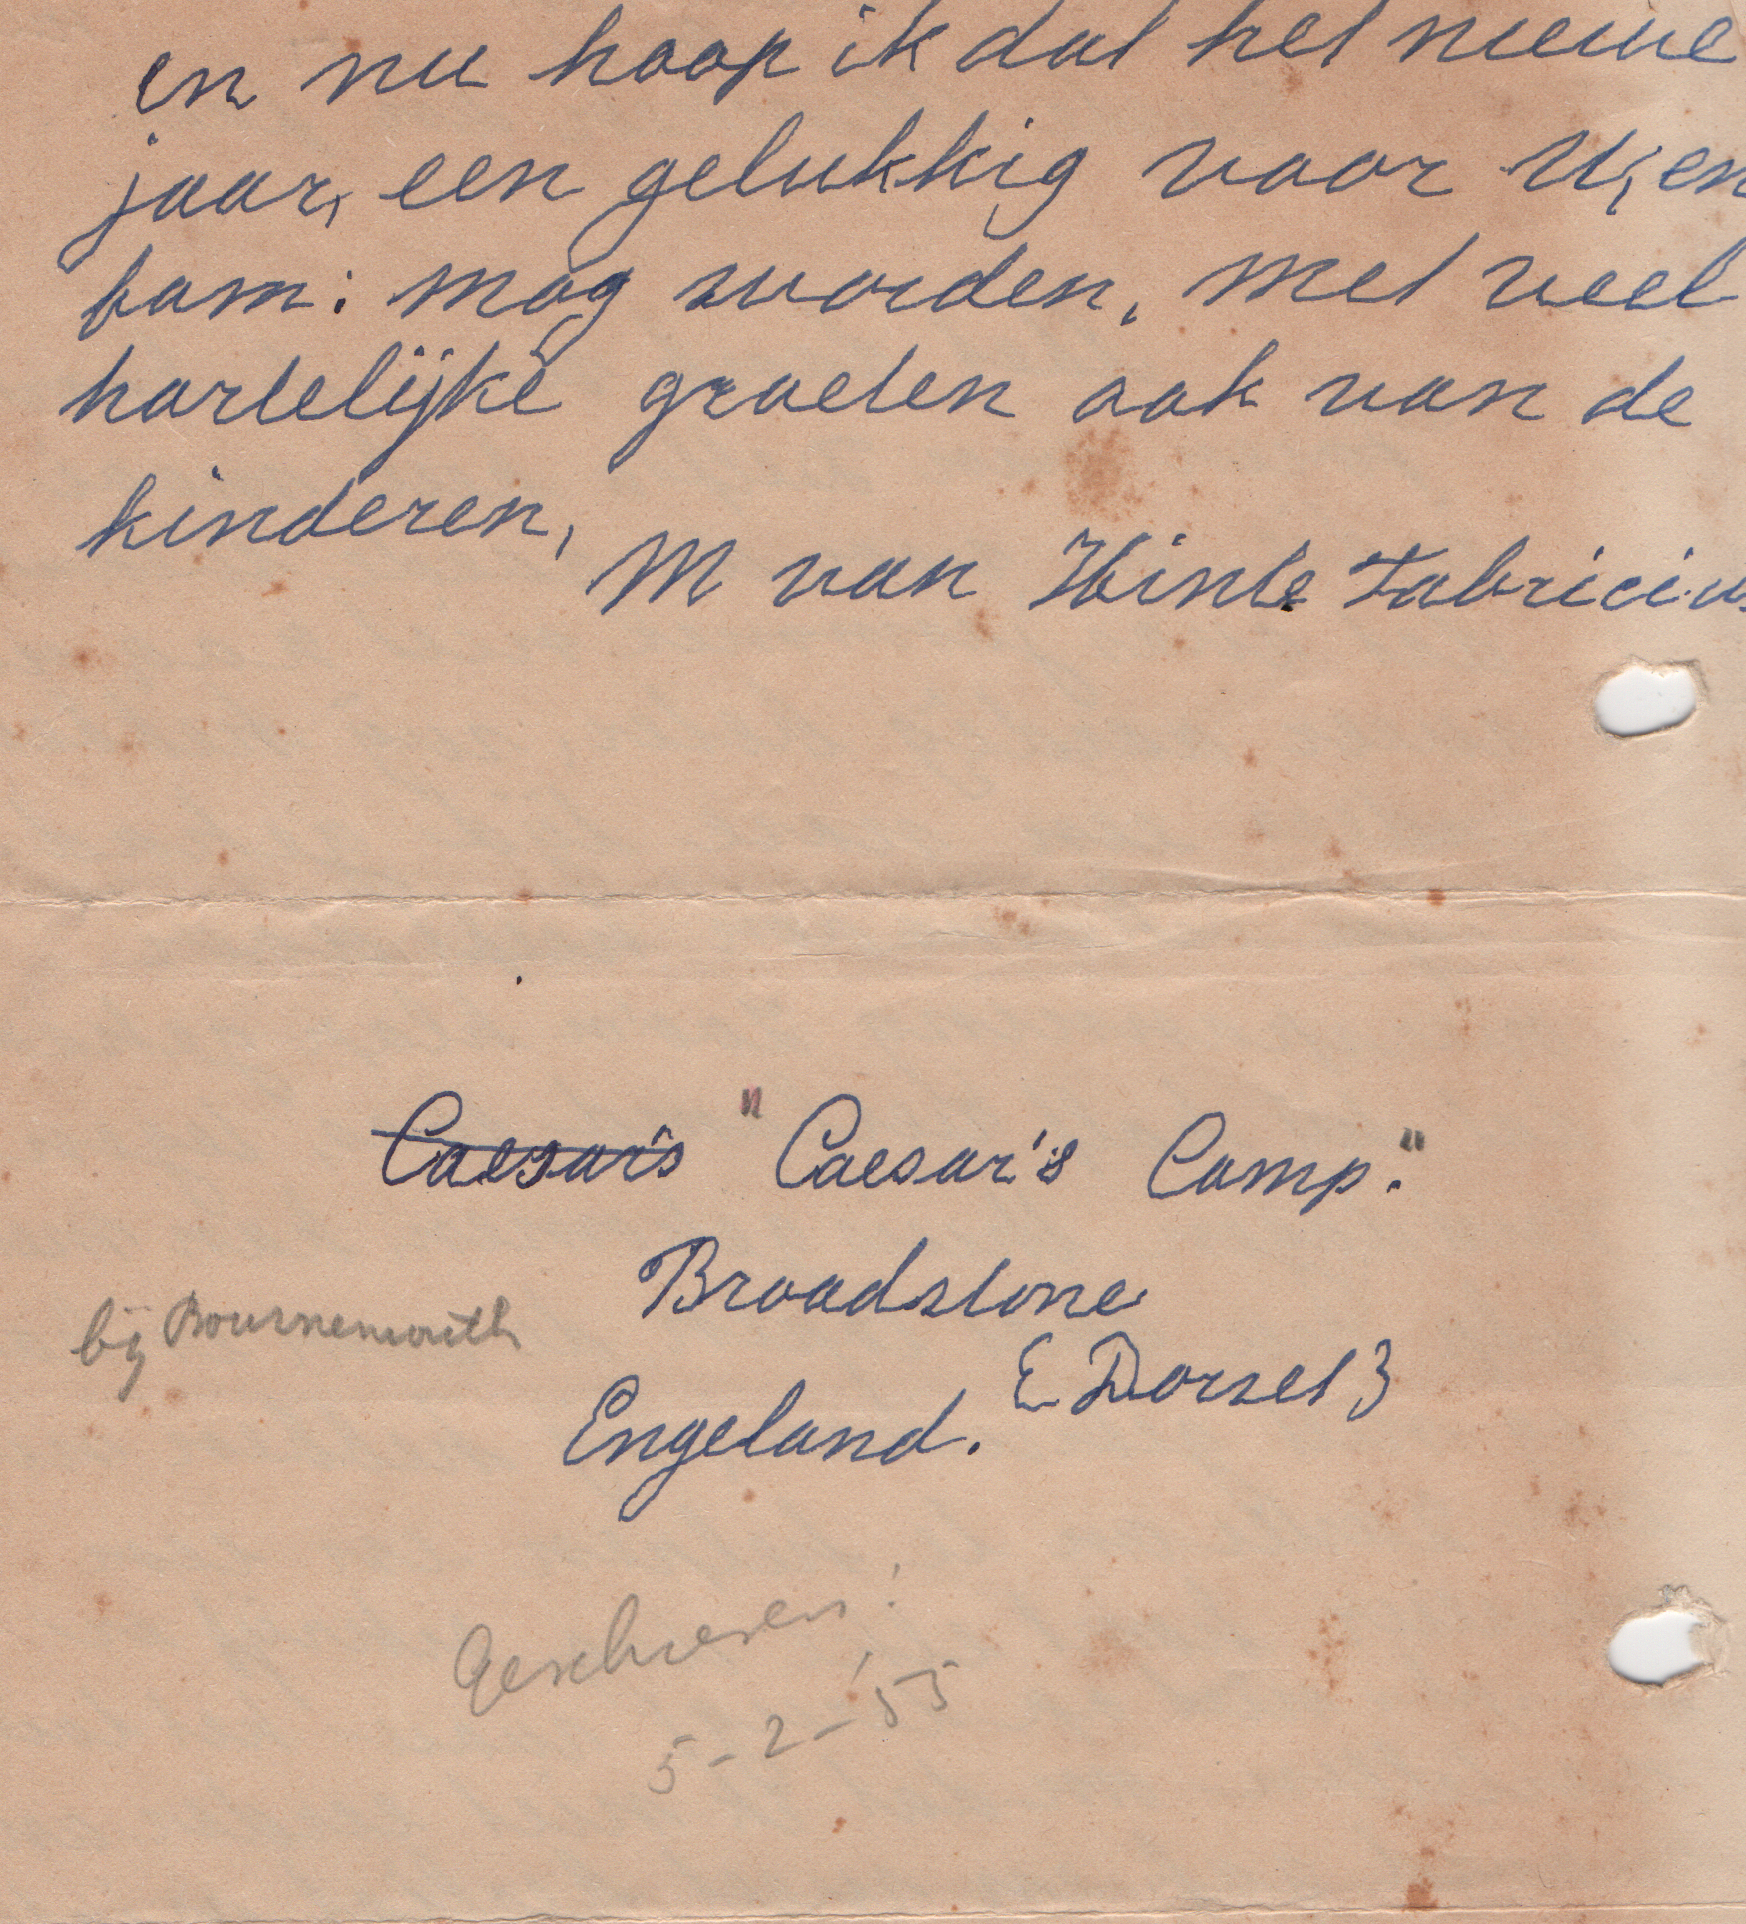 en nu hoop ik dat het nieuwe
jaar, een gelukkig voor U, en
fam: mag worden, met veel
hartelijke groeten ook van de
kinderen,
M van Hinte Fabricius
Caesar's "Caesar's Camp."
Broadstone
bij Bournemouth
(Dorset)
Engeland.
Geschreven!
5-2-'55